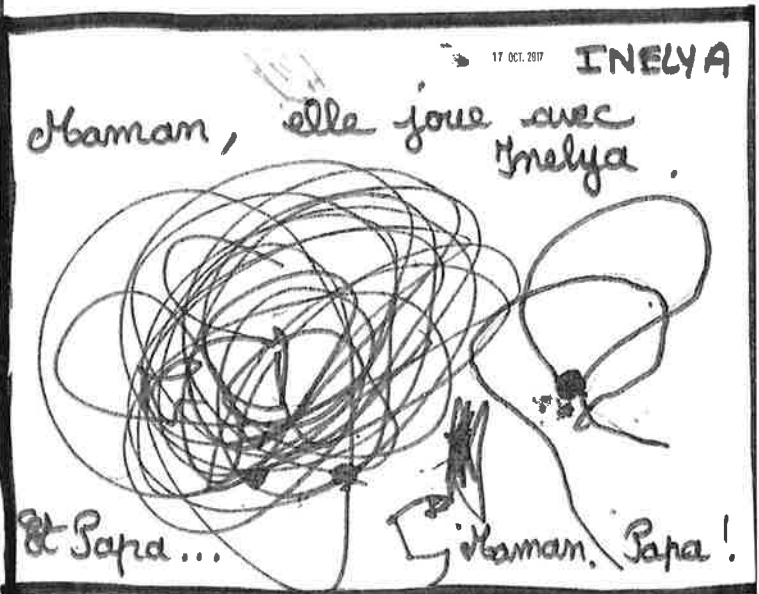 17 OCT. 2017
INELYA
Maman, elle joue avec
Inelya.
Et Papa... Maman, Papa!